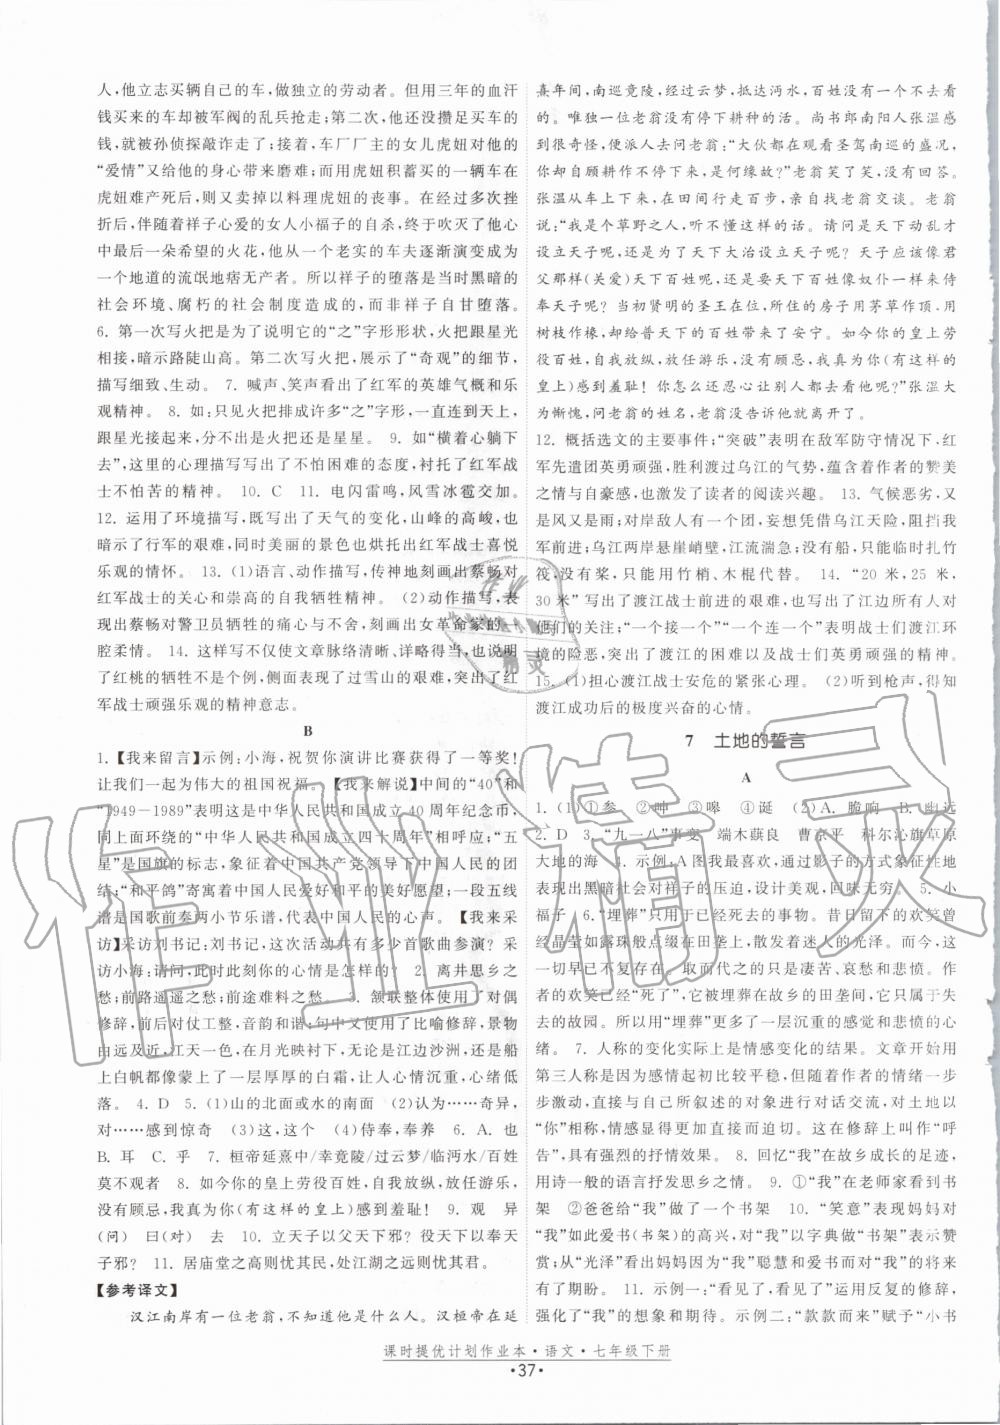 人,他立志买辆自己的车,做独立的劳动者。但用三年的血汗
钱买来的车却被军阀的乱兵抢走;第二次,他还没攒足买车的
钱,就被孙侦探敲诈走了;接着,车厂厂主的女儿虎妞对他的
“爱情”又给他的身心带来磨难;而用虎妞积蓄买的一辆车,在
虎妞难产死后,则又卖掉以料理虎妞的丧事。在经历多次挫
折后,伴随着祥子心爱的女人小福子的自杀,终于吹灭了他心
中最后一朵希望的火花,他从一个老实的车夫逐渐演变成为
一个地道的流氓地痞无产者。所以祥子的堕落是当时黑暗的
社会环境、腐朽的社会制度造成的,而非祥子自甘堕落。
6. 第一次写火把是为了说明它的“之”字形形状,火把跟星光
相接,暗示路陡山高。第二次写火把,展示了“奇观”的细节,
描写细致、生动。 7. 喊声、笑声看出了红军的英雄气概和乐
观精神。 8. 如:只见火把排成许多“之”字形,一直连到天上,
跟星光接起来,分不出是火把还是星星。 9. 如“横着心躺下
去”,这里的心理描写写出了不怕困难的态度,衬托了红军战
士不怕苦的精神。 10. C 11. 电闪雷鸣,风雪冰雹交加。
12. 运用了环境描写,既写出了天气的变化,山峰的高峻,也
暗示了行军的艰难,同时美丽的景色也烘托出红军战士喜悦
乐观的情怀。 13. (1)语言、动作描写,传神地刻画出蔡畅对
红军战士的关心和崇高的自我牺牲精神。 (2)动作描写,表
现出蔡畅对警卫员牺牲的伤心与不舍,刻画出女革命家的一
腔柔情。 14. 这样写不仅使文章脉络清晰、自然,同时也说明
了红桃的牺牲不是个例,侧面表现了过雪山的艰难,表现了红
军战士顽强乐观的精神意志。
B
1.【我来留言】示例:小海,祝贺你演讲比赛获得了一等奖!
让我们一起为伟大的祖国祝福。 【我来解说】中间的“40”和
“1949—1989”表明这是中华人民共和国成立40周年纪念币,
同上面环绕的“中华人民共和国成立四十周年”相呼应;“五
星”是国旗的标志,象征着中国共产党领导下中国人民的团
结;“和平鸽”寄寓着中国人民爱好和平的美好愿望;一段五线
谱是国歌前奏两小节乐谱,代表中国人民的心声。【我来采
访】采访刘书记:刘书记,这次活动共有多少首歌曲参演?采
访小海:请问,此时此刻你的心情是怎样的? 2. 离井思乡之
愁;前路遥遥之愁;前途难料之愁。 3. 颔联整体使用了对偶
修辞,前后对仗工整,音韵和谐;句中又使用了比喻修辞,景物
由远及近,江天一色,在月光映衬下,无论是江边沙洲,还是船
上白帆都像蒙上了一层厚厚的白霜,让人心情沉重,难以散
落。 4. D 5. (1)山的北面或水的南面 (2)认为……奇异,
对……感到惊奇 (3)这,这个 (4)侍奉,奉养 6. A. 也
B. 耳 C. 乎 7. 桓帝延熹中/幸竟陵/过云梦/临沔水/百姓
莫不观者 8. 如今你的皇上劳役百姓,自我放纵,放任游乐,
没有顾忌,我真为你(有这样的皇上)感到羞耻! 9. 观 异
(问) 曰(对) 去 10. 立天子以父天下邪?役天下以奉天
子邪? 11. 居庙堂之高则忧其民,处江湖之远则忧其君。
【参考译文】
汉江南岸有一位老翁,不知道他是什么人。汉桓帝在延
熹年间,南巡竟陵,经过云梦,抵达沔水,百姓没有不观看的。
唯独有一位老翁没有停下耕种的活。尚书郎南阳人张温感
到很奇怪,便派人去问老翁:“大伙都来观看圣驾南巡的盛况,
你却自顾耕作不予理睬,是何缘故?”老翁笑了笑,没有回答。
张温从车上下来,在田间阡陌上亲自找老翁交谈。老翁
说:“我是个草野之人,听不懂这样的话。请问是天下动乱才
设立天子呢?还是为了天下大治设立天子呢?天子应该像君
父那样(关爱)天下百姓呢,还是天下百姓像奴仆一样来侍
奉天子呢?当初贤明的圣王在位,所住的房子用茅草作顶,用
树枝作椽,却给普天下的百姓带来了安宁。如今你的皇上劳
役百姓,自我放纵,放任游乐,没有顾忌,我真为你(有这样的
皇上)感到羞耻!你怎么忍心让别人都来观看他呢?”张温大
为惭愧,问老翁的姓名,老翁没告诉他就离开了。
12. 概括选文的主要事件;“突破”表明在敌军防守情况下,红
军先遣团英勇顽强,胜利渡过乌江的气势,蕴含着作者的赞美
之情与自豪感,也激发了读者的阅读兴趣。 13. 气候恶劣,又
是风又是雨;对岸敌人有一个团,妄想凭借乌江天险,阻挡我
军前进;乌江两岸悬崖峭壁,江流湍急;没有船,只能临时扎竹
筏,没有桨,只能用竹梢、木棍代替。 14. “20米,25米,
30米”写出了渡江战士前进的艰难,也写出了江边所有人对
他们的关注;“一个接一个”“一个连一个”表明战士们对渡江
环境的险恶,突出了渡江的困难以及战士们英勇顽强的精神。
15. (1)担心渡江战士安危的紧张心理。 (2)听到枪声,得知
渡江成功后的极度兴奋的心情。
7 土地的誓言
A
1. (1)①参 ②呻 ③嗥 ④诞 (2)A. 脆响 B. 幽远
2. D 3. “九一八”事变 端木蕻良 曹京平 科尔沁旗草原
大地的海 4. 示例:A图我最喜欢,通过影子的方式象征性地
表现出黑暗社会对祥子的压迫,设计美观,回味无穷。 5. 小
福子 6. “埋葬”只用于已经死去的事物。昔日留下的欢笑曾
经晶莹如露珠般点缀在田垄上,散发着迷人的光泽。而今这
一切都已不复存在,取而代之的只是凄苦、哀愁和悲愤。作者
的欢笑已经“死了”,已被埋葬在故乡的田垄间,埋葬在早已失
去的故园。所以用“埋葬”更多了一层沉重的感觉和悲愤的心
绪。 7. 人称的变化实际上是情感变化的结果。文章开始使用
第三人称是因为情感起初比较平稳,但随着作者的情绪一步
步激动,难以控制和自己描述的对象进行对话交流,对土地以
“你”相称,情感显得更加直接而迫切。这在修辞上叫作“呼
告”,具有强烈的抒情效果。 8. 回忆“我”在故乡成长的足迹,
用诗一般的语言抒发思乡之情。 9. ①“我”在老师家看到书
架 ②爸爸给“我”做了一个书架 10. “笑意”表现妈妈对
“我”如此喜爱书(书架)的高兴,对“我”以字典做“书架”表示赞
赏;从“光泽”想出妈妈因为“我”聪慧和爱书而对“我”的将来有
了期盼。 11. 示例一:“看见了,看见了”运用反复的修辞,
强化了“我”的想象和期待。示例二:“款款而来”赋予“小书
课时提优计划作业本·语文·七年级下册
·37·
作业精灵